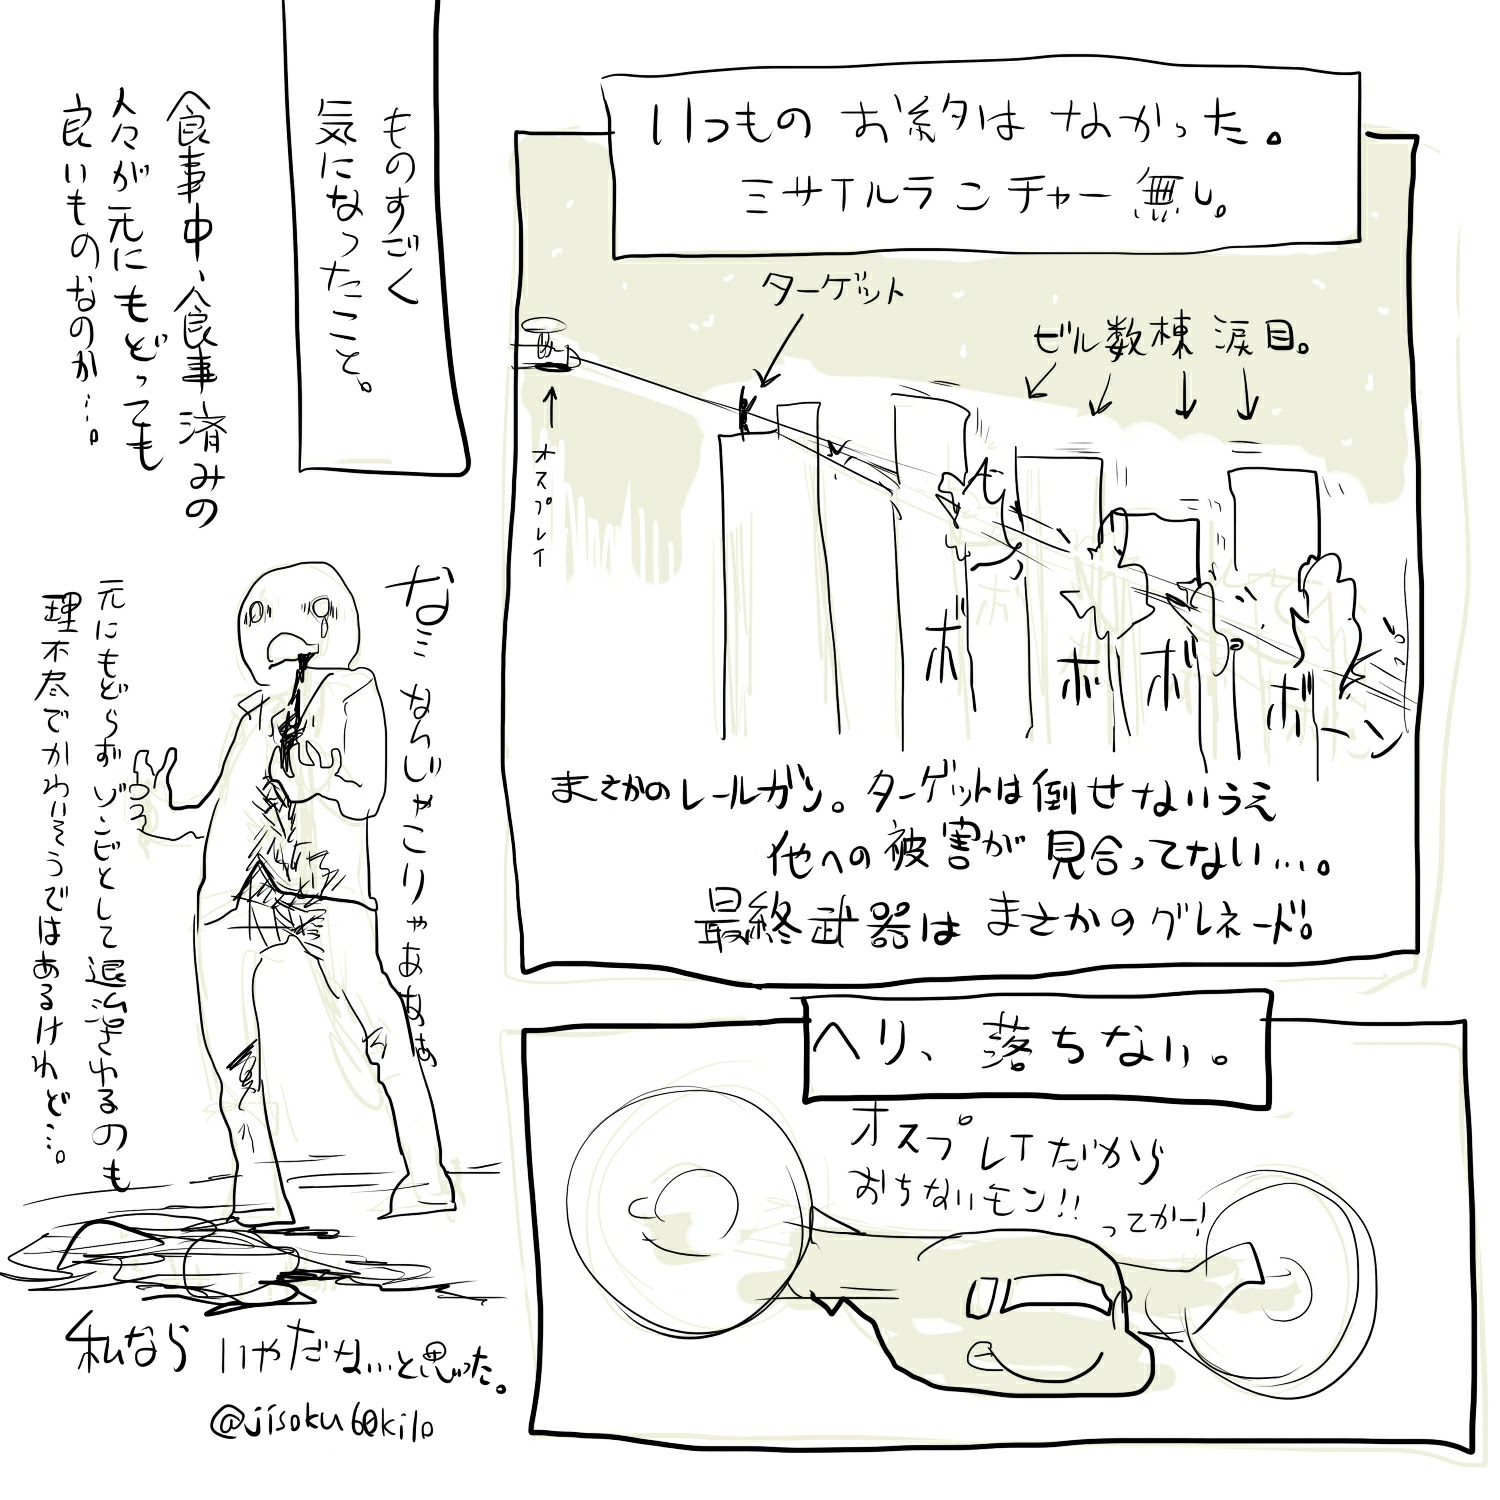 いつものお約はなかった。
ミサイルランチャー無し。
ターゲット
ビル数棟 涙目。
オスプレイ
ボ
ボ
ボ
ボーン
まさかのレールガン。ターゲットは倒せないうえ
他への被害が見合ってない…。
最終武器はまさかのグレネード!
ヘリ、落ちない。
オスプレイだから
おちないモン!!
ってかー!
ものすごく
気になったこと。
食事中、食事済みの
人々が元にもどっても
良いものなのか…。
な…なんじゃこりゃああぁ
元にもどらずゾンビとして退治されるのも
理不尽でかわいそうではあるけれど…。
私ならいやだな…と思った。
@jisoku60kilo